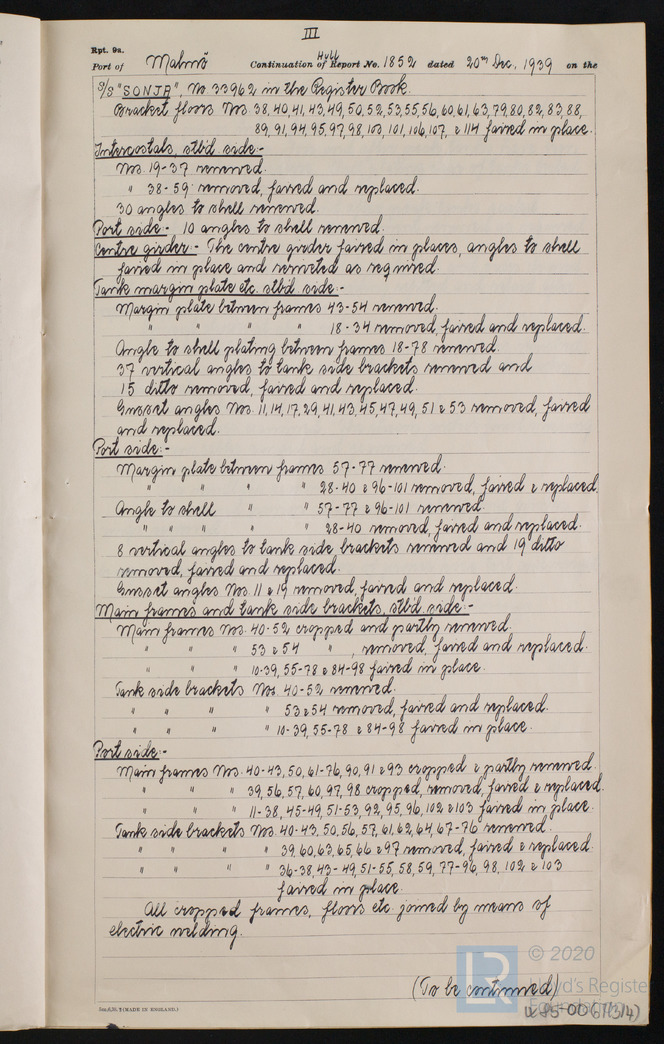 III
Rpt. 9a.
Port of Malmö Continuation of Hull Report No. 1852 dated 20th Dec. 1939 on the
S/S "SONJA", No 33962 in the Register Book.
Bracket floors Nos 38, 40, 41, 43, 49, 50, 52, 53, 55, 56, 60, 61, 63, 79, 80, 82, 83, 88,
89, 91, 94, 95, 97, 98, 100, 101, 106, 107, & 114 faired in place.
Intercostals, stb'd side:-
Nos. 19-37 renewed.
" 38-59 removed, faired and replaced.
30 angles to shell renewed.
Port side:- 10 angles to shell renewed.
Centre girder:- The centre girder faired in places, angles to shell
faired in place and reriveted as required.
Tank margin plate etc. stb'd side:-
Margin plate between frames 43-54 renewed.
" " " " 18-34 removed, faired and replaced.
Angle to shell plating between frames 18-78 renewed.
37 vertical angles to tank side brackets renewed and
15 ditto removed, faired and replaced.
Gusset angles Nos. 11, 14, 17, 29, 41, 43, 45, 47, 49, 51 & 53 removed, faired
and replaced.
Port side:-
Margin plate between frames 57-77 renewed.
" " " " 28-40 & 96-101 removed, faired & replaced.
Angle to shell " " 57-77 & 96-101 renewed.
" " " " " 28-40 removed, faired and replaced.
8 vertical angles to tank side brackets renewed and 19 ditto
removed, faired and replaced.
Gusset angles Nos 11 & 19 removed, faired and replaced.
Main frames and tank side brackets, stb'd side:-
Main frames Nos. 40-52 cropped and partly renewed.
" " " 53 & 54 " , removed, faired and replaced.
" " " 10-39, 55-78 & 84-98 faired in place.
Tank side brackets Nos. 40-52 renewed.
" " " " 53 & 54 removed, faired and replaced.
" " " " 10-39, 55-78 & 84-98 faired in place.
Port side:-
Main frames Nos. 40-43, 50, 61-76, 90, 91 & 93 cropped & partly renewed.
" " " 39, 56, 57, 60, 97, 98 cropped, removed, faired & replaced.
" " " 11-38, 45-49, 51-53, 92, 95, 96, 102 & 103 faired in place.
Tank side brackets Nos. 40-43, 50, 56, 57, 61, 62, 64, 67-76 renewed.
" " " " 39, 60, 63, 65, 66 & 97 removed, faired & replaced.
" " " " 36-38, 43-49, 51-55, 58, 59, 77-96, 98, 102 & 103
faired in place.
All cropped frames, floors etc. joined by means of
electric welding.
(To be continued)
© 2020
LR
Lloyd's Register
Foundation
(MADE IN ENGLAND.)